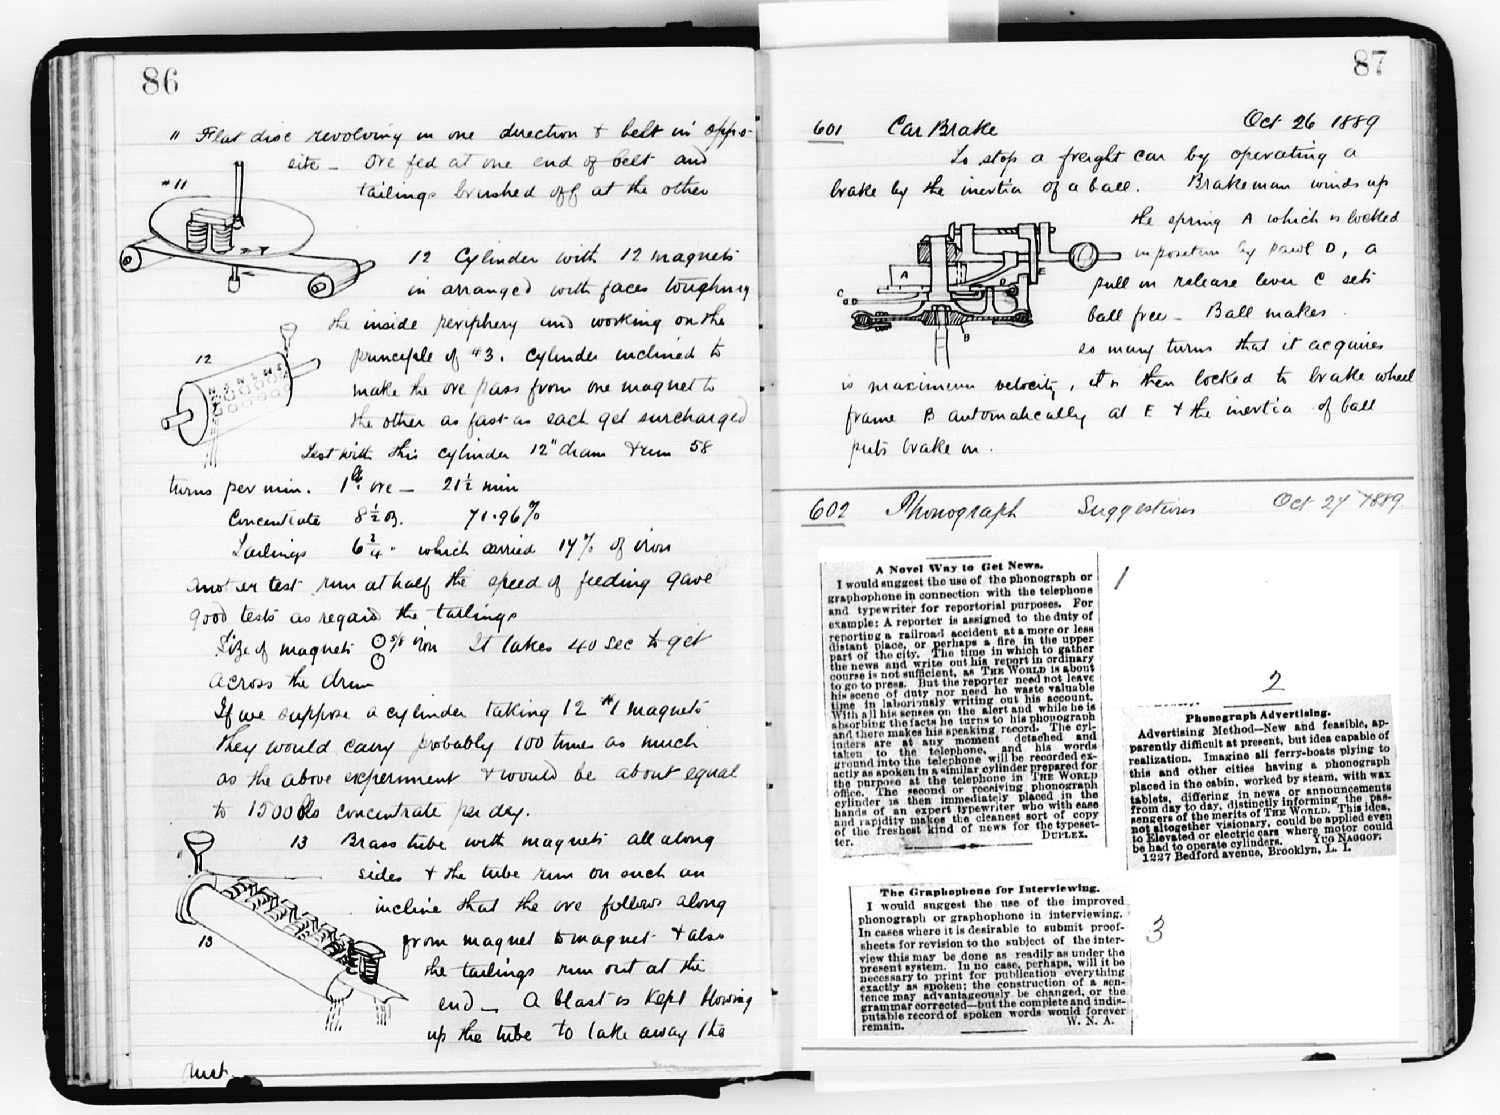 86
11 Flat disc revolving in one direction & belt in oppo-
site – Ore fed at one end of belt and
tailings brushed off at the other
#11
12 Cylinder with 12 magnets
in arranged with faces toughing
the inside periphery and working on the
principle of #3. Cylinder inclined to
make the ore pass from one magnet to
the other as fast as each get surcharged
12
N S N S N S N
Test with this cylinder 12" diam & run 58
turns per min. 1 lb. ore – 21½ min
Concentrate 8½ oz. 71.96%
Tailings 6¾ " which carried 17% of iron
another test run at half the speed of feeding gave
good tests as regard the tailings
Size of magnets 5/8 iron It takes 40 sec to get
across the drum
If we suppose a cylinder taking 12 #1 magnets
they would carry probably 100 times as much
as the above experiment & would be about equal
to 1500 lbs concentrate per day.
13 Brass tube with magnets all along
sides & the tube run on such an
incline that the ore follows along
from magnet to magnet & also
the tailings run out at the
end – A blast is kept blowing
up the tube to take away the
13
dust.
87
601 Car Brake Oct 26 1889
To stop a freight car by operating a
brake by the inertia of a ball. Brakeman winds up
the spring A which is locked
in position by pawl D, a
pull on release lever C sets
ball free – Ball makes
so many turns that it acquires
A
E
C
D
B
is maximum velocity, it is then locked to brake wheel
frame B automatically at E & the inertia of ball
puts brake on.
602 Phonograph Suggestions Oct 27 1889.
1
A Novel Way to Get News.
I would suggest the use of the phonograph or
graphophone in connection with the telephone
and typewriter for reportorial purposes. For
example: A reporter is assigned to the duty of
reporting a railroad accident at a more or less
distant place, or perhaps a fire, in the upper
part of the city. The time in which to gather
the news and write out his report in ordinary
course is not sufficient, as THE WORLD is about
to go to press. But the reporter need not leave
his scene of duty nor need he waste valuable
time in laboriously writing out his account.
With all his senses on the alert and while he is
absorbing the facts he turns to his phonograph
and there makes his speaking record. The cyl-
inders are at any moment detached and
taken to the telephone, and his words
ground into the telephone will be recorded ex-
actly as spoken in a similar cylinder prepared for
the purpose at the telephone in THE WORLD
office. The second or receiving phonograph
cylinder is then immediately placed in the
hands of an expert typewriter who with ease
and rapidity makes the cleanest sort of copy
of the freshest kind of news for the typeset-
ter. DUPLEX.
2
Phonograph Advertising.
Advertising Method—New and feasible, ap-
parently difficult at present, but idea capable of
realization. Imagine all ferry-boats plying to
this and other cities having a phonograph
placed in the cabin, worked by steam, with wax
tablets, differing in news or announcements
from day to day, distinctly informing the pas-
sengers of the merits of THE WORLD. This idea,
not altogether visionary, could be applied even
to Elevated or electric cars where motor could
be had to operate cylinders. YUG NAGGOF.
1227 Bedford avenue, Brooklyn, L. I.
3
The Graphophone for Interviewing.
I would suggest the use of the improved
phonograph or graphophone in interviewing.
In cases where it is desirable to submit proof-
sheets for revision to the subject of the inter-
view this may be done as readily as under the
present system. In no case, perhaps, will it be
necessary to print for publication everything
exactly as spoken; the construction of a sen-
tence may advantageously be changed, or the
grammar corrected—but the complete and indis-
putable record of spoken words would forever
remain. W. N. A.